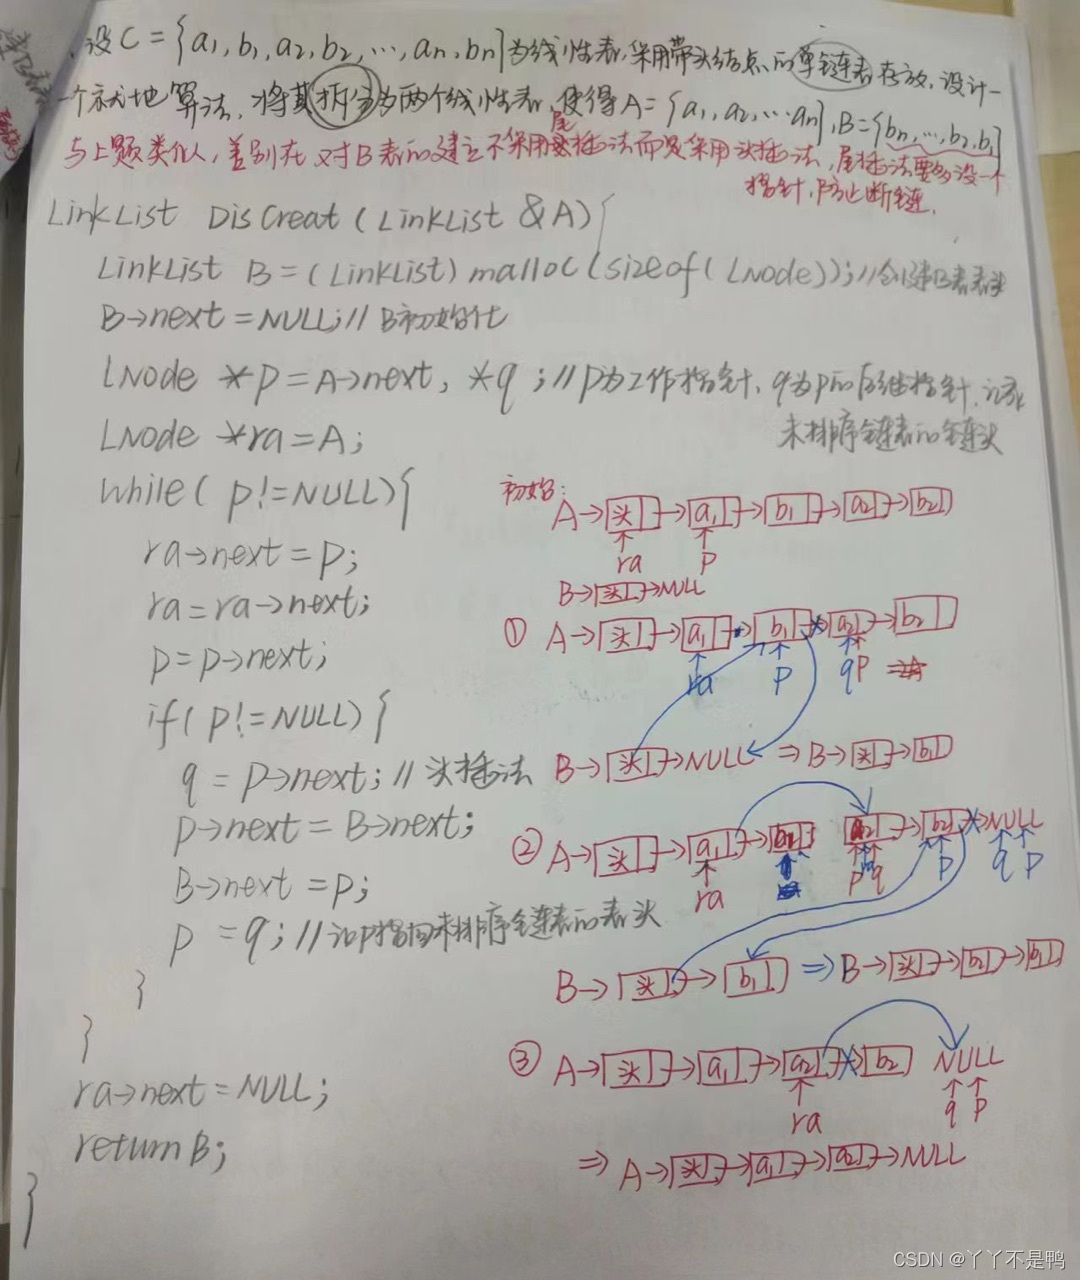 设C={a1,b1,a2,b2,…,an,bn}为线性表,采用带头结点的单链表存放,设计一
个就地算法,将其拆分为两个线性表,使得A={a1,a2,…an},B={bn,…,b2,b1}
与上题类似,差别在对B表的建立不采用尾插法而是采用头插法,尾插法要多设一个
指针,防止断链.
LinkList DisCreat(LinkList &A){
LinkList B=(LinkList)malloc(sizeof(LNode));//创建B表表头
B→next=NULL;//B初始化
LNode *p=A→next, *q;//p为工作指针,q为p的后继指针,记录
未排序链表的链头
LNode *ra=A;
while(p!=NULL){
ra→next=p;
ra=ra→next;
p=p→next;
if(p!=NULL){
q=p→next;//头插法
p→next=B→next;
B→next=p;
p=q;//让p指回未排序链表的表头
}
}
ra→next=NULL;
return B;
}
初始:
A→头→a1→b1→a2→b2
ra p
B→头→NULL
① A→头→a1→b1→a2→b2
ra p q p
B→头→NULL ⇒ B→头→b1
② A→头→a1→b1 a2→b2→NULL
ra p q p q p
B→头→b1 ⇒ B→头→b2→b1
③ A→头→a1→a2→b2 NULL
ra q p
⇒ A→头→a1→a2→NULL
CSDN @丫丫不是鸭